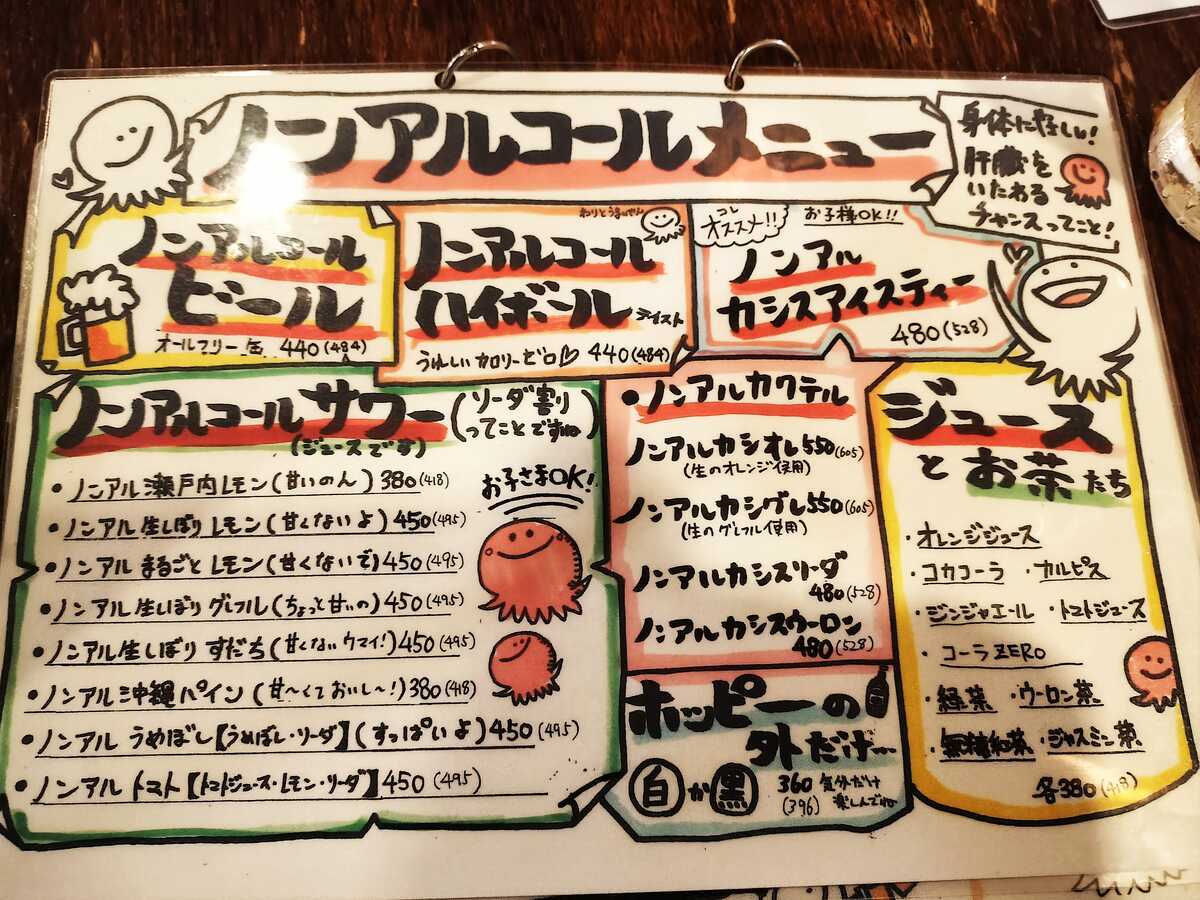 ノンアルコールメニュー
身体にやさしい!
肝臓を
いたわる
チャンスってこと!
ノンアルコール
ビール
オールフリー 缶 440(484)
わりとうまいやん
ノンアルコール
ハイボール テイスト
うれしいカロリーゼロ♡ 440(484)
コレ
オススメ!!
お子様OK!!
ノンアル
カシスアイスティー
480(528)
ノンアルコールサワー
(ジュースです)
(ソーダ割り
ってことですね)
お子さまOK!
・ノンアル瀬戸内レモン(甘いのん)380(418)
・ノンアル生しぼりレモン(甘くないよ)450(495)
・ノンアルまるごとレモン(甘くないで)450(495)
・ノンアル生しぼりグレフル(ちょっと甘いの)450(495)
・ノンアル生しぼりすだち(甘くないウマイ!)450(495)
・ノンアル沖縄パイン(甘〜くておいし〜!)380(418)
・ノンアル うめぼし【うめぼし・ソーダ】(すっぱいよ)450(495)
・ノンアルトマト【トマトジュース・レモン・ソーダ】450(495)
・ノンアルカクテル
ノンアルカシオレ550(605)
(生のオレンジ使用)
ノンアルカシグレ550(605)
(生のグレフル使用)
ノンアルカシスソーダ
480(528)
ノンアルカシスウーロン
480(528)
ホッピーの
外だけ…
白か黒
360
(396)
気分だけ
楽しんでね
ジュース
とお茶たち
・オレンジジュース
・コカコーラ ・カルピス
・ジンジャエール ・トマトジュース
・コーラZERO
・緑茶 ・ウーロン茶
・無糖紅茶 ・ジャスミン茶
各380(418)